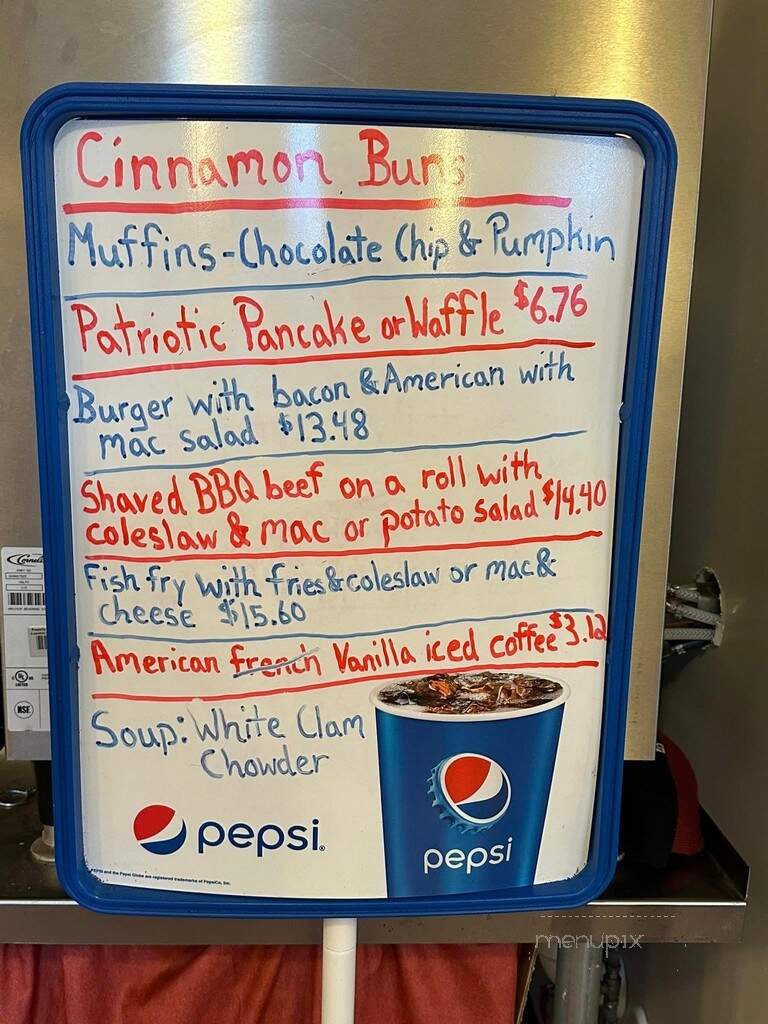 Cinnamon Buns
Muffins-Chocolate Chip & Pumpkin
Patriotic Pancake or Waffle $6.76
Burger with bacon & American with
mac salad $13.48
Shaved BBQ beef on a roll with
coleslaw & mac or potato salad $14.40
Fish fry with fries & coleslaw or mac &
cheese $15.60
American french Vanilla iced coffee $3.12
Soup: White Clam
Chowder
pepsi.
pepsi
PEPSI and the Pepsi Globe are registered trademarks of PepsiCo, Inc.
Corneli
NSF
menupix